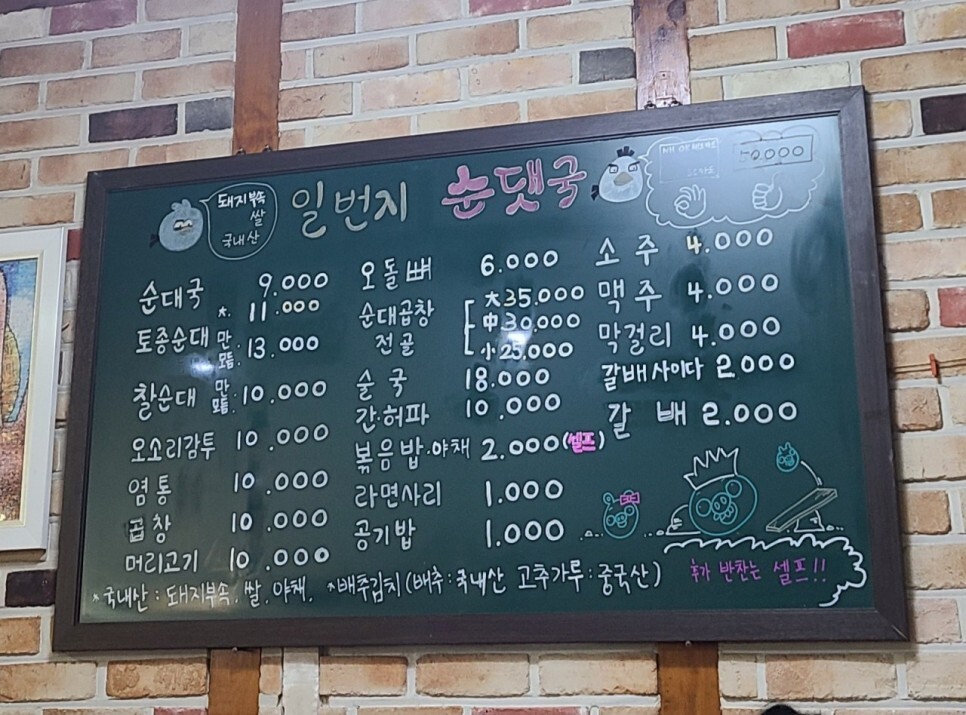 돼지부속
쌀
국내산
일번지 순댓국
50.000
순대국 9.000
大. 11.000
토종순대 만 모듬. 13.000
찰순대 만 모듬. 10.000
오소리감투 10.000
염통 10.000
곱창 10.000
머리고기 10.000
오돌뼈 6.000
순대곱창 전골
大 35.000
中 30.000
小 25.000
술국 18.000
간·허파 10.000
볶음밥·야채 2.000(셀프)
라면사리 1.000
공기밥 1.000
소주 4.000
맥주 4.000
막걸리 4.000
갈배사이다 2.000
갈배 2.000
*국내산 : 돼지부속, 쌀, 야채, *배추김치(배추:국내산 고추가루:중국산)
추가 반찬는 셀프!!